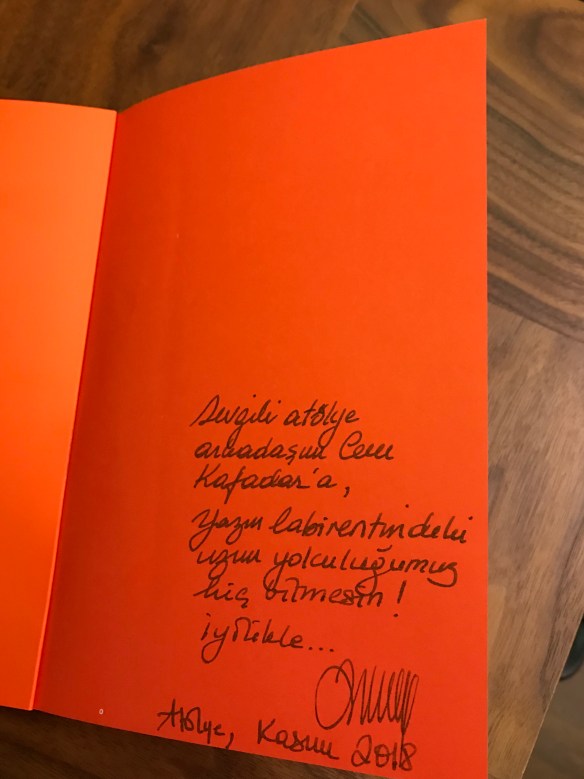 Sevgili atölye
arkadaşım Cem
Kafadar'a,
Yazın labirentindeki
uzun yolculuğumuz
hiç bitmesin!
iyilikle...
Atölye, Kasım 2018